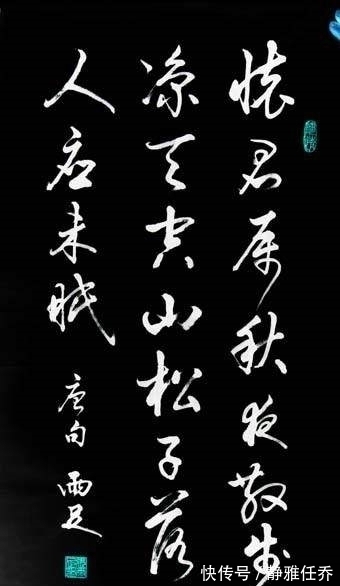 懷君属秋夜散步
凉天空山松子落
人应未眠
唐句
快传号/静雅任乔